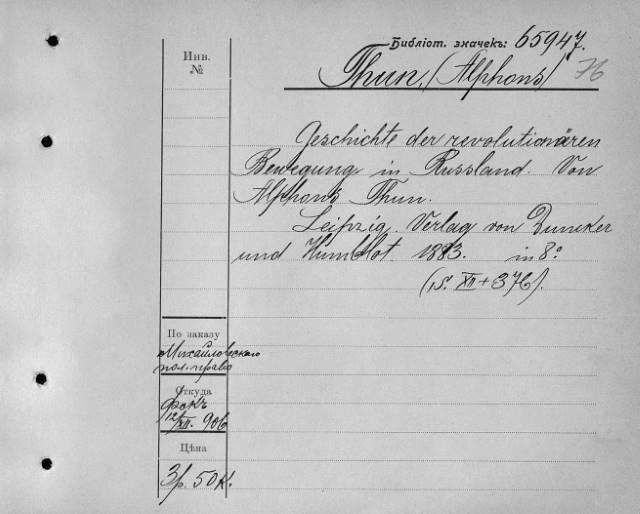 Библіот. значекъ: 65947.
Инв.
№
Thun, (Alphons) 76
Geschichte der revolutionären
Bewegung in Russland. Von
Alphons Thun.
Leipzig. Verlag von Duncker
und Humblot. 1883. in 8°
(S. XII + 376).
По заказу
Михайловскаго
пол. право
Откуда
Фокъ
12/XII. 906
Цѣна
3 р. 50 к.